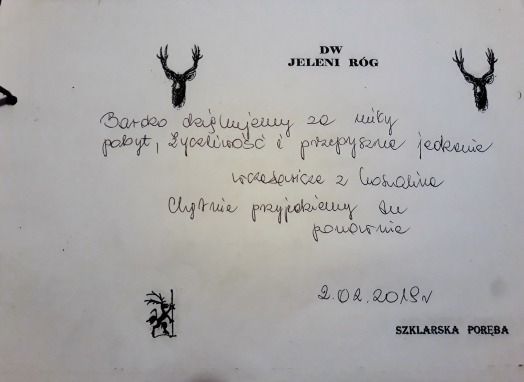 DW
JELENI RÓG
Bardzo dziękujemy za miły
pobyt, życzliwość i przepyszne jedzenie
wczasowicze z Koszalina
Chętnie przyjedziemy tu
ponownie
2.02.2019r
SZKLARSKA PORĘBA